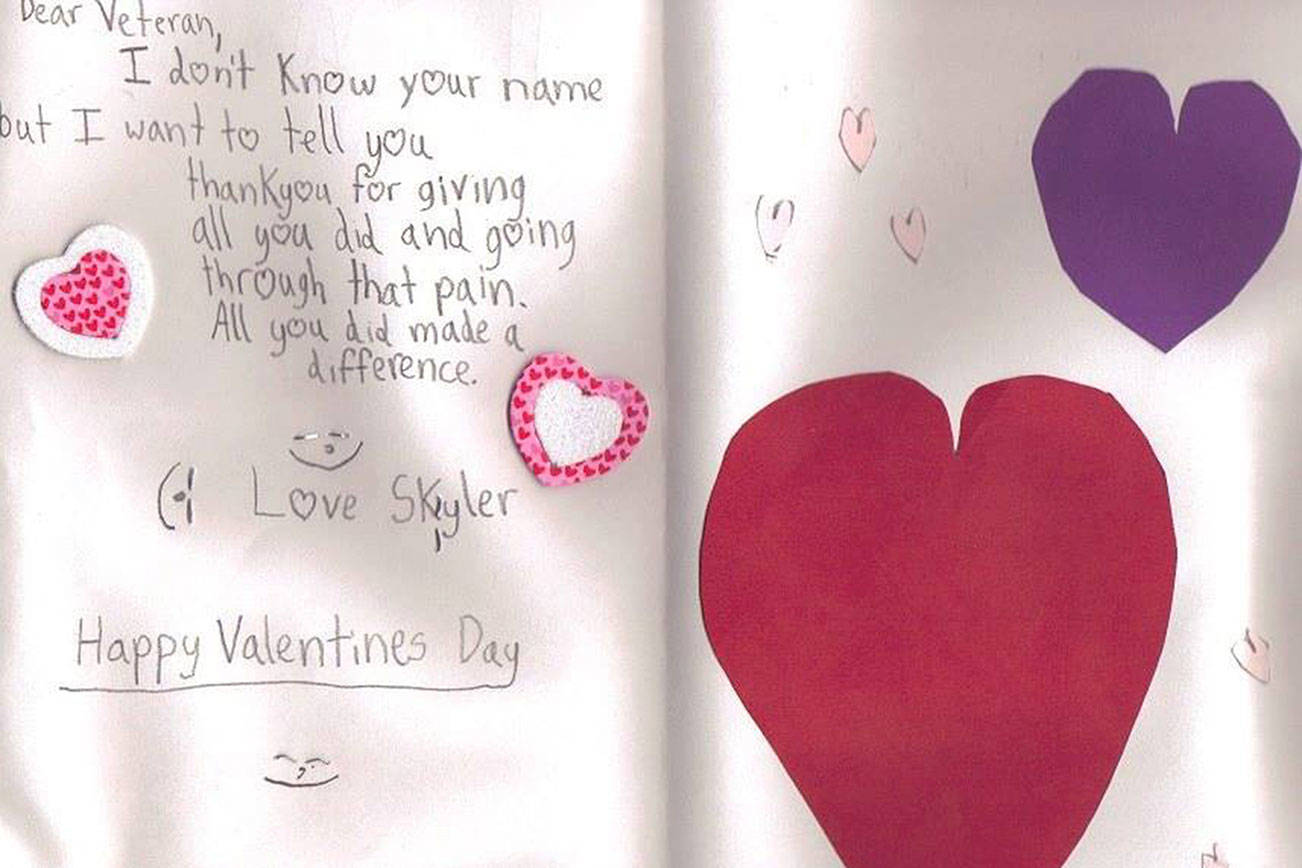 Dear Veteran,
I don't Know your name
but I want to tell you
thankyou for giving
all you did and going
through that pain.
All you did made a
difference.
Love Skyler
Happy Valentines Day